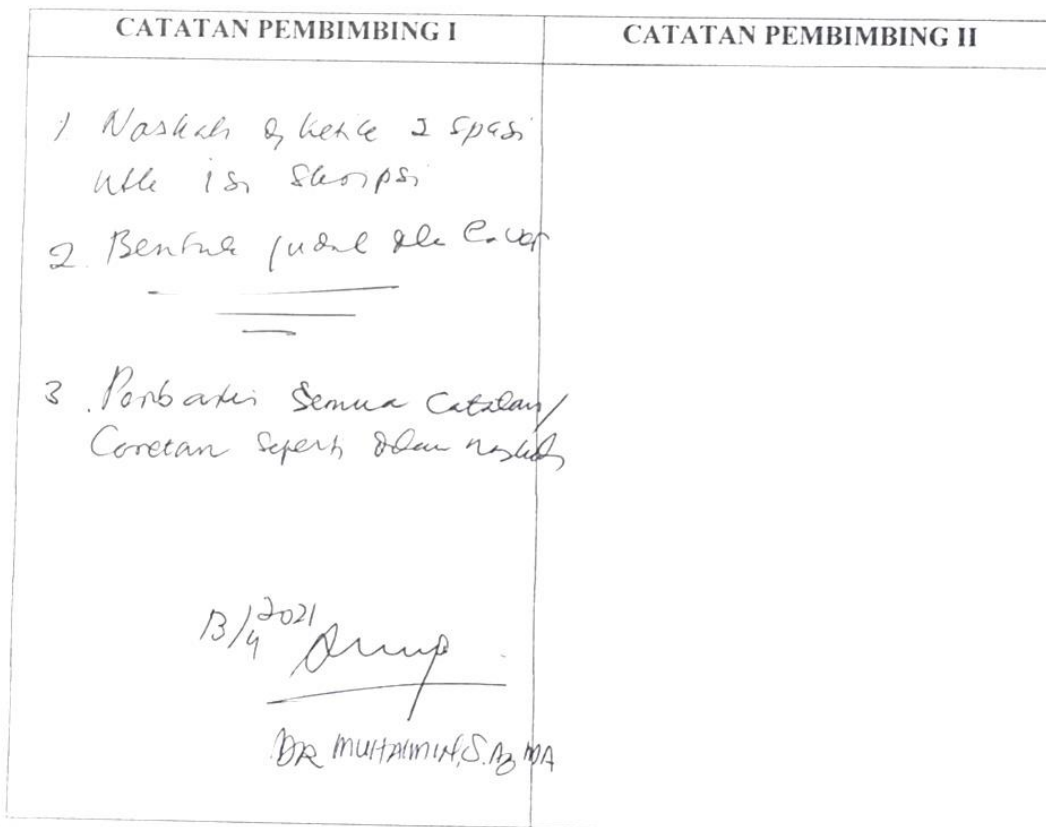 CATATAN PEMBIMBING I
CATATAN PEMBIMBING II
1) Naskah diketik 2 spasi
utk isi skripsi
2. Bentuk judul dlm Cover
3. Perbaiki semua catatan/
Coretan seperti dalam naskah
13/4 2021
DR MUHAIMIN, S.Ag MA